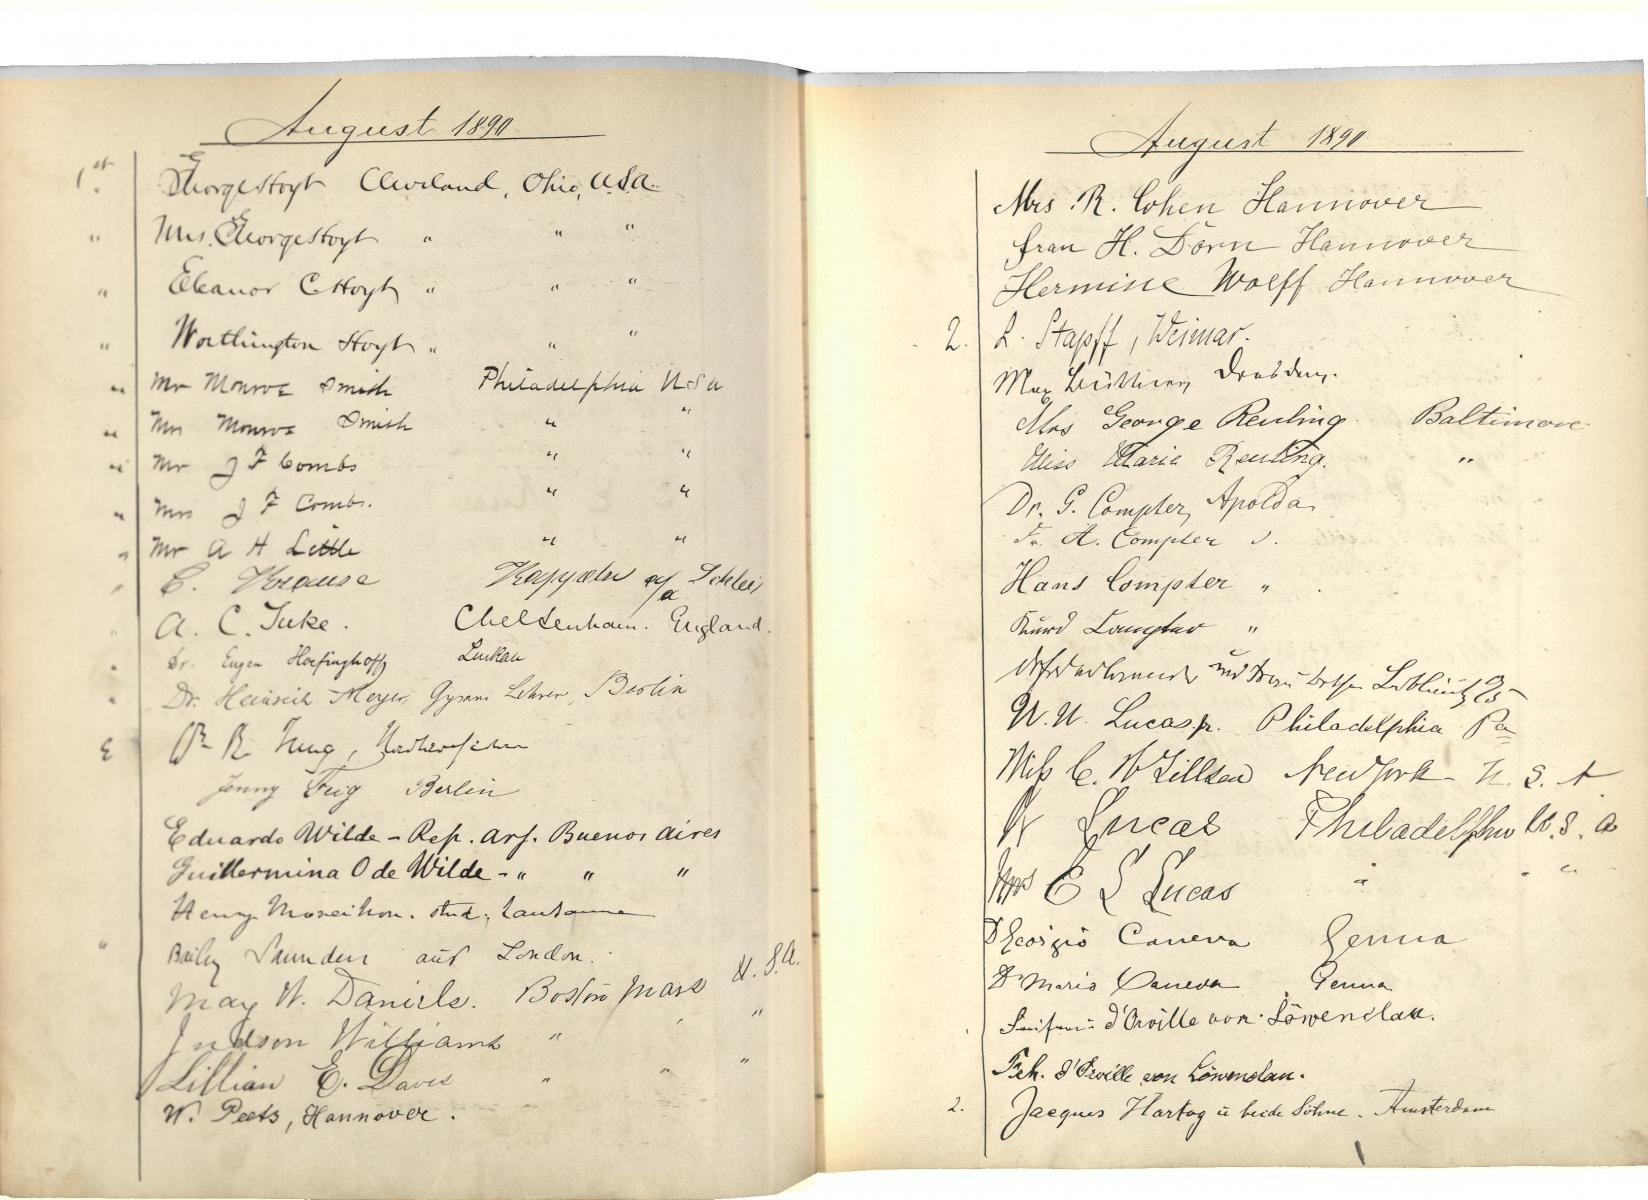 August 1890
1st George Hoyt Cleveland, Ohio, U.S.A.
" Mrs. George Hoyt " " "
" Eleanor C. Hoyt " " "
" Worthington Hoyt " " "
" Mr Monroe Smith Philadelphia U S a
" Mrs Monroe Smith " "
" Mr J F Combs " "
" Mrs J F Combs. " "
" Mr A H Little " "
" C. Krause Kappeln a/d Schlei
" A. C. Tuke. Cheltenham. England.
" Dr. Eugen Hoefinghoff Luckau
" Dr. Heinrich Meyer, Gymn. Lehrer, Berlin
Jenny Feig Berlin
Eduardo Wilde - Rep. Arg. Buenos Aires
Guillermina O de Wilde - " " "
Henry stud. Lausanne
" Bailey Saunders aus London.
May W. Daniels. Boston Mass U.S.A.
Judson Williams " " "
Lillian E. Davis " " "
W. Peets, Hannover.
August 1890
Mrs. R. Cohen Hannover
Frau H. Dorn Hannover
Hermine Wolff Hannover
2. L. Stapff, Weimar.
Max Dresden.
Mrs George Reuling Baltimore
Miss Marie Reuling. "
Dr. G. Compter, Apolda
Fr. A. Compter
Hans Compter "
Compter "
und Frau
W. W. Lucas jr. Philadelphia Pa
Miss C. New York U. S. A
W Lucas Philadelphia U. S. A
Mrs E L Lucas " " "
D Georgio Caneva Genua
D Mario Caneva Genua
d'Orville von Löwenclau.
Frh. d'Orville von Löwenclau.
2. Jacques Hartog u beide Söhne. Amsterdam